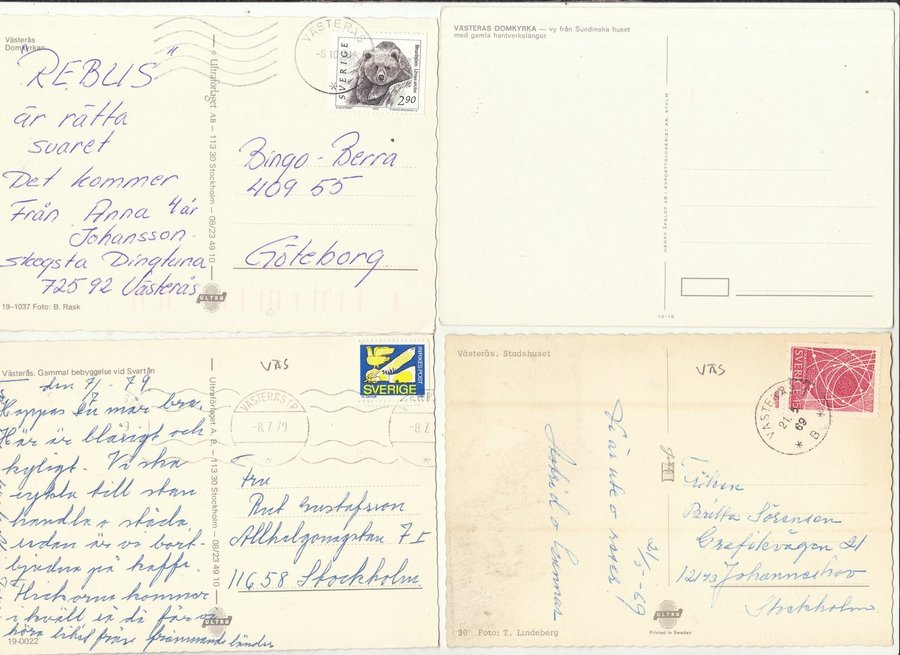 Västerås
Domkyrkan
"REBUS"
är rätta
svaret
Det kommer
Från Anna 4 år
Johansson
Skogsta Dingtuna
725 92 Västerås
19-1037 Foto: B. Rask
Ultraförlaget AB - 113 30 Stockholm - 08/23 49 10
ULTRA
VÄSTERÅS
SVERIGE
Brunbjörn Ursus arctos
2.90
Bingo-Berra
409 55
Göteborg
VÄSTERÅS DOMKYRKA — vy från Sundinska huset
med gamla hantverkslängor
HENRY ÅFELDT AB / EXPORTTRYCKERIET AB, STHLM
Västerås. Gammal bebyggelse vid Svartån
den 7/7 - 79
Hoppas Du mår bra.
Här är blåsigt och
kyligt. Vi ska
cykla till stan
handla o städa
sedan är vi bort-
bjudna på kaffe.
Flickorna kommer
i kväll så då får vi
höra litet från främmande länder
19-0022
Ultraförlaget A.B. - 113 30 Stockholm - 08/23 49 10
ULTRA
VÄS
INRIKES POST
SVERIGE
VÄSTERÅS 1
-8.7.79
-8.7
Fru
Rut Gustafsson
Allhelgonagatan 7 I
116 58 Stockholm.
Västerås. Stadshuset
VÄS
SVERIGE
VÄSTERÅS
21.5
69
B
21/5-69
Vi är ute o reser.
Astrid o Gunnar
Fröken
Britta Sörensen
Grafikvägen 21
121 43 Johanneshov
Stockholm
ULTRA
Printed in Sweden
30 Foto: T. Lindeberg